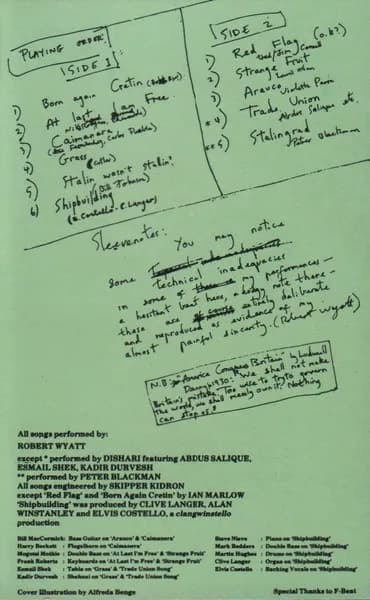 PLAYING ORDER:
SIDE 1
1) Born again Cretin
2) At last I am Free
3) Caimanera
4) Grass
5) Stalin wasn't Stalin'
6) Shipbuilding
(E. Costello - C. Langer)
SIDE 2
1) Red Flag
2) Strange Fruit
3) Arauco
* 4) Trade Union
Abdus Salique etc.
** 5) Stalingrad
Peter Blackman
Sleevenotes: You may notice
some
technical inadequacies
in some of my performances –
a hesitant beat here, a dodgy note there –
these are entirely deliberate
and reproduced as evidence of my
almost painful sincerity. (Robert Wyatt)
N.B: "America Conquers Britain" by Ludwell
Denny 1930: "We shall not make
Britain's mistake. Too wise to try to govern
the world, we shall merely own it. Nothing
can stop us"
All songs performed by:
ROBERT WYATT
except * performed by DISHARI featuring ABDUS SALIQUE,
ESMAIL SHEK, KADIR DURVESH
** performed by PETER BLACKMAN
All songs engineered by SKIPPER KIDRON
except 'Red Flag' and 'Born Again Cretin' by IAN MARLOW
'Shipbuilding' was produced by CLIVE LANGER, ALAN
WINSTANLEY and ELVIS COSTELLO, a clangwinstello
production
Bill MacCormick: Bass Guitar on 'Arauco' & 'Caimanera'
Harry Beckett : Flugelhorn on 'Caimanera'
Mogotsi Mothle : Double Bass on 'At Last I'm Free' & 'Strange Fruit'
Frank Roberts : Keyboards on 'At Last I'm Free' & 'Strange Fruit'
Esmail Shek : Tabla on 'Grass' & 'Trade Union Song'
Kadir Durvesh : Shehnai on 'Grass' & 'Trade Union Song'
Steve Nieve : Piano on 'Shipbuilding'
Mark Bedders : Double Bass on 'Shipbuilding'
Martin Hughes : Drums on 'Shipbuilding'
Clive Langer : Organ on 'Shipbuilding'
Elvis Costello : Backing Vocals on 'Shipbuilding'
Cover Illustration by Alfreda Benge
Special Thanks to F-Beat